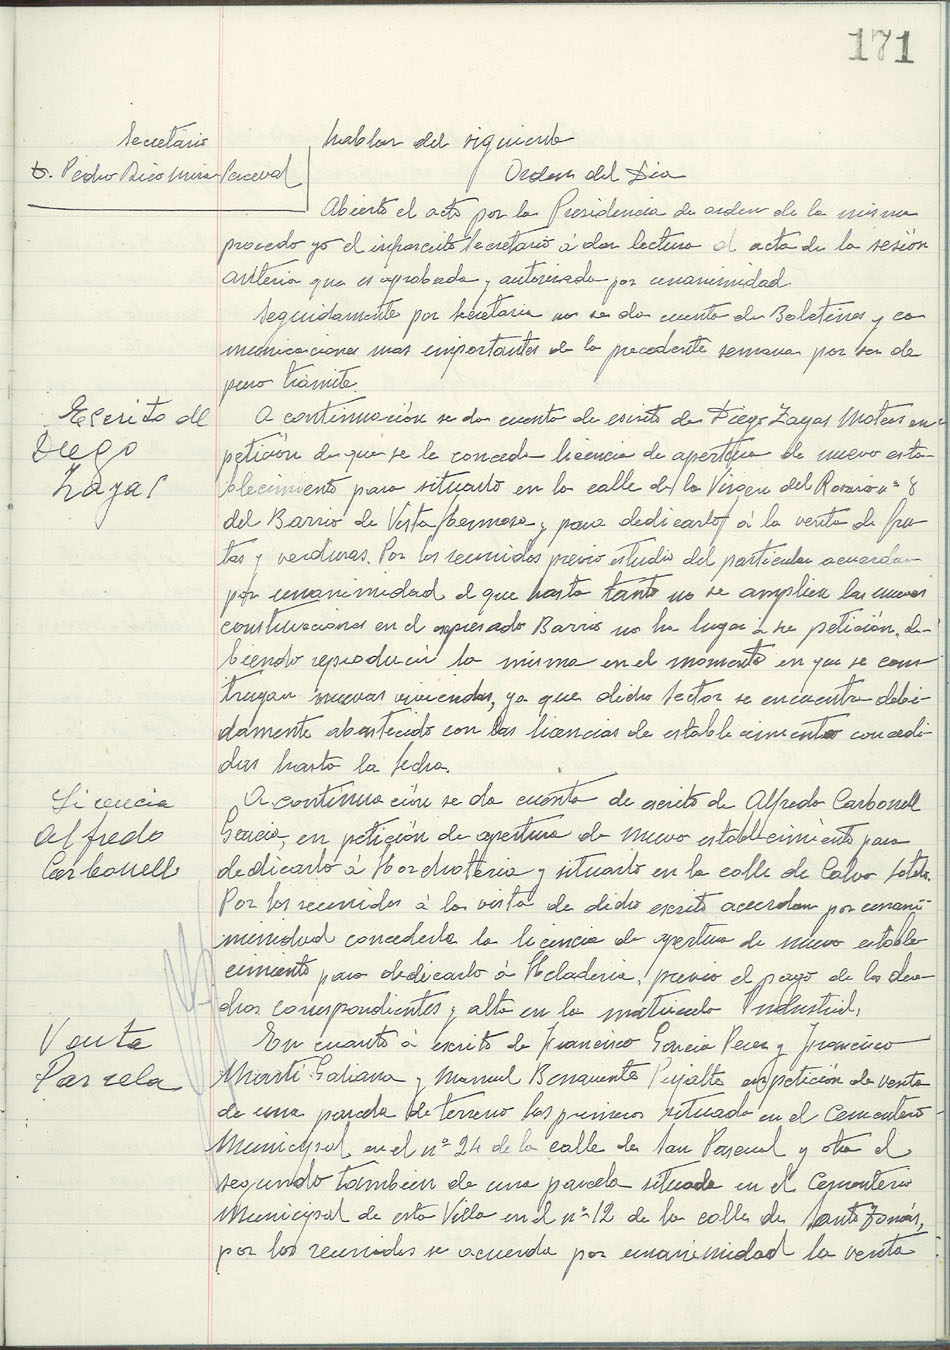 171
Secretario
D. Pedro Rico Mira-Perceval
hablar del siguiente
Orden del Dia
Abierto el acto por la Presidencia de orden de la misma
procedo yo el infrascrito Secretario á dar lectura al acta de la sesión
anterior que es aprobada y autorizada por unanimidad.
Seguidamente por secretaria no se da cuenta de Boletines y co
municaciones mas importantes de la precedente semana por ser de
puro trámite.
Escrito de
Diego
Zayas
A continuación se da cuenta de escrito de Diego Zayas Mateos en
petición de que se le conceda licencia de apertura de nuevo esta-
blecimiento para situarlo en la calle de la Virgen del Rosario nº 8
del Barrio de Vista hermosa y para dedicarlo á la venta de fru
tas y verduras. Por los reunidos previo estudio del particular acuerdan
por unanimidad el que hasta tanto no se amplien las nuevas
construcciones en el expresado Barrio no ha lugar á su petición, de-
biendo reproducir la misma en el momento en que se cons
truyan nuevas viviendas, ya que dicho sector se encuentra debi-
damente abastecido con las licencias de establecimientos concedi-
das hasta la fecha.
Licencia
Alfredo
Carbonell
A continuación se da cuenta de escrito de Alfredo Carbonell
Garcia, en petición de apertura de nuevo establecimiento para
dedicarlo á Horchateria y situarlo en la calle de Calvo Sotelo.
Por los reunidos á la vista de dicho escrito acuerdan por unani-
minidad concederle la licencia de apertura de nuevo estable
cimiento para dedicarlo á Heladeria, previo el pago de los dere
chos correspondientes y alta en la matricula Industrial,
Venta
Parcela
En cuanto á escrito de Francisco Garcia Perez y Francisco
Marti Galiana y Manuel Benavente Pujalte en petición de venta
de una parcela de terreno los primeros situada en el Cementerio
Municipal en el nº 24 de la calle de San Pascual y otra el
segundo tambien de una parcela situada en el Cementerio
Municipal de esta Villa en el nº 12 de la calle de Santo Tomás,
por los reunidos se acuerda por unanimidad la venta